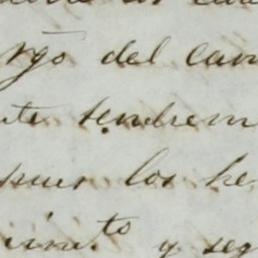 rgo del cam
te tendrem
pues los he
um.to y seg